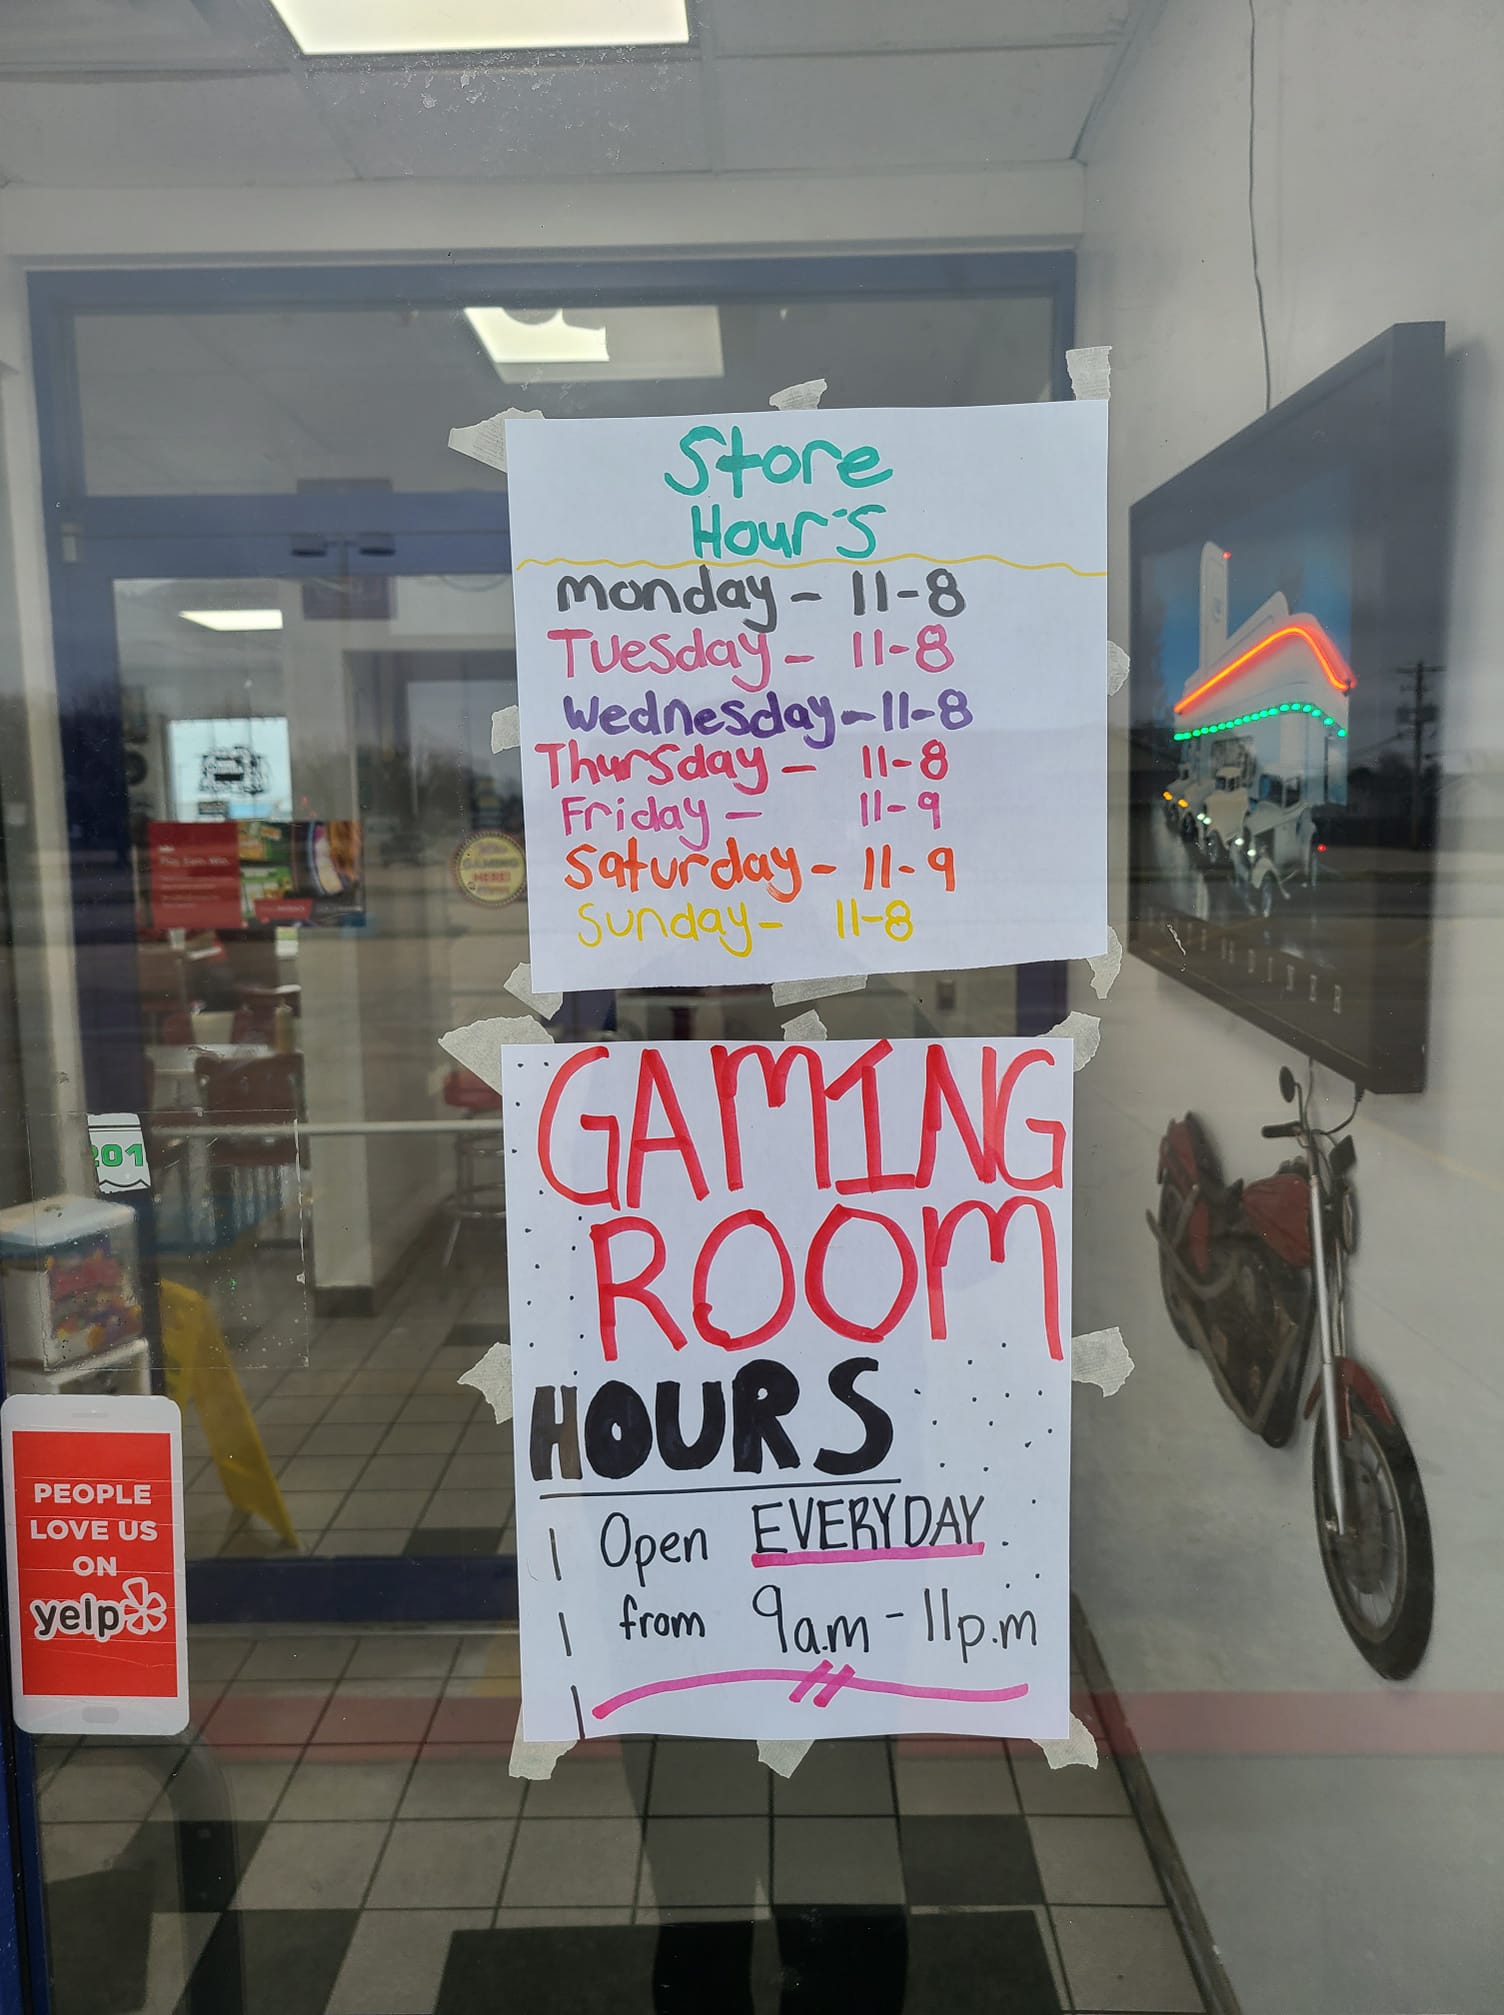 Store
Hour's
Monday - 11-8
Tuesday - 11-8
Wednesday - 11-8
Thursday - 11-8
Friday - 11-9
Saturday - 11-9
Sunday - 11-8
GAMING
ROOM
HOURS
Open EVERYDAY
from 9a.m - 11p.m
PEOPLE
LOVE US
ON
yelp
201
GAMING
HERE!